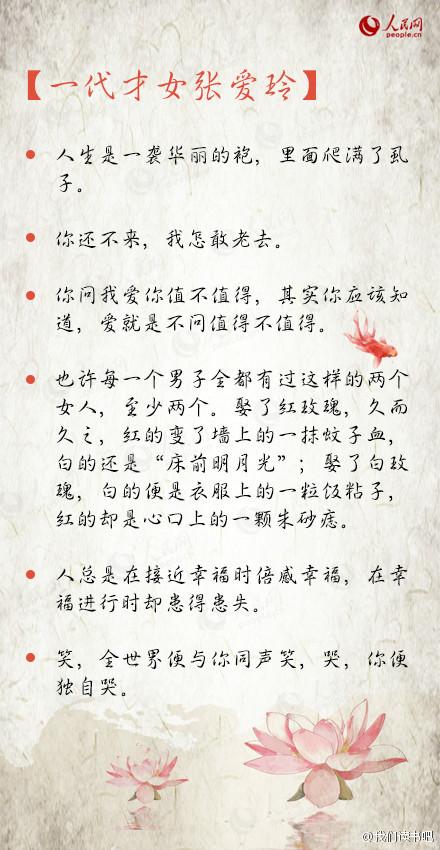 人民网
people.cn
【一代才女张爱玲】
人生是一袭华丽的袍，里面爬满了虱
子。
你还不来，我怎敢老去。
你问我爱你值不值得，其实你应该知
道，爱就是不问值得不值得。
也许每一个男子全都有过这样的两个
女人，至少两个。娶了红玫瑰，久而
久之，红的变了墙上的一抹蚊子血，
白的还是“床前明月光”；娶了白玫
瑰，白的便是衣服上的一粒饭粘子，
红的却是心口上的一颗朱砂痣。
人总是在接近幸福时倍感幸福，在幸
福进行时却患得患失。
笑，全世界便与你同声笑，哭，你便
独自哭。
@我们读书吧